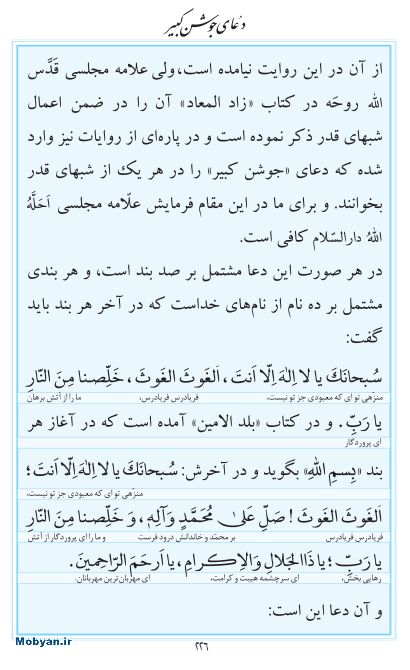 دعای جوشن کبیر
از آن در این روایت نیامده است،ولی علامه مجلسی قَدَّس
الله روحَه در کتاب «زاد المعاد» آن را در ضمن اعمال
شبهای قدر ذکر نموده است و در پاره‌ای از روایات نیز وارد
شده که دعای «جوشن کبیر» را در هر یک از شبهای قدر
بخوانند. و برای ما در این مقام فرمایش علّامه مجلسی اَحَلَّهُ
اللهُ دارالسّلام کافی است.
در هر صورت این دعا مشتمل بر صد بند است، و هر بندی
مشتمل بر ده نام از نام‌های خداست که در آخر هر بند باید
گفت:
سُبحانَكَ یا لا اِلٰهَ اِلّا اَنتَ، اَلغَوثَ الغَوثَ، خَلِّصنا مِنَ النّارِ
منزهی تو ای که معبودی جز تو نیست، فریادرس فریادرس، ما را از آتش برهان
یا رَبِّ. و در کتاب «بلد الامین» آمده است که در آغاز هر
ای پروردگار
بند «بِسمِ اللهِ» بگوید و در آخرش: سُبحانَكَ یا لا اِلٰهَ اِلّا اَنتَ؛
منزّهی تو ای که معبودی جز تو نیست،
اَلغَوثَ الغَوثَ ! صَلِّ عَلیٰ مُحَمَّدٍ وَآلِهِ، وَ خَلِّصنا مِنَ النّارِ
فریادرس فریادرس بر محمّد و خاندانش درود فرست و ما را ای پروردگار از آتش
یا رَبِّ؛ یا ذَا الجَلالِ وَالاِکرامِ، یا اَرحَمَ الرّاحِمینَ.
رهایی بخش، ای سرچشمه هیبت و کرامت، ای مهربان‌ترین مهربانان.
و آن دعا این است:
Mobyan.ir
۲۲۶